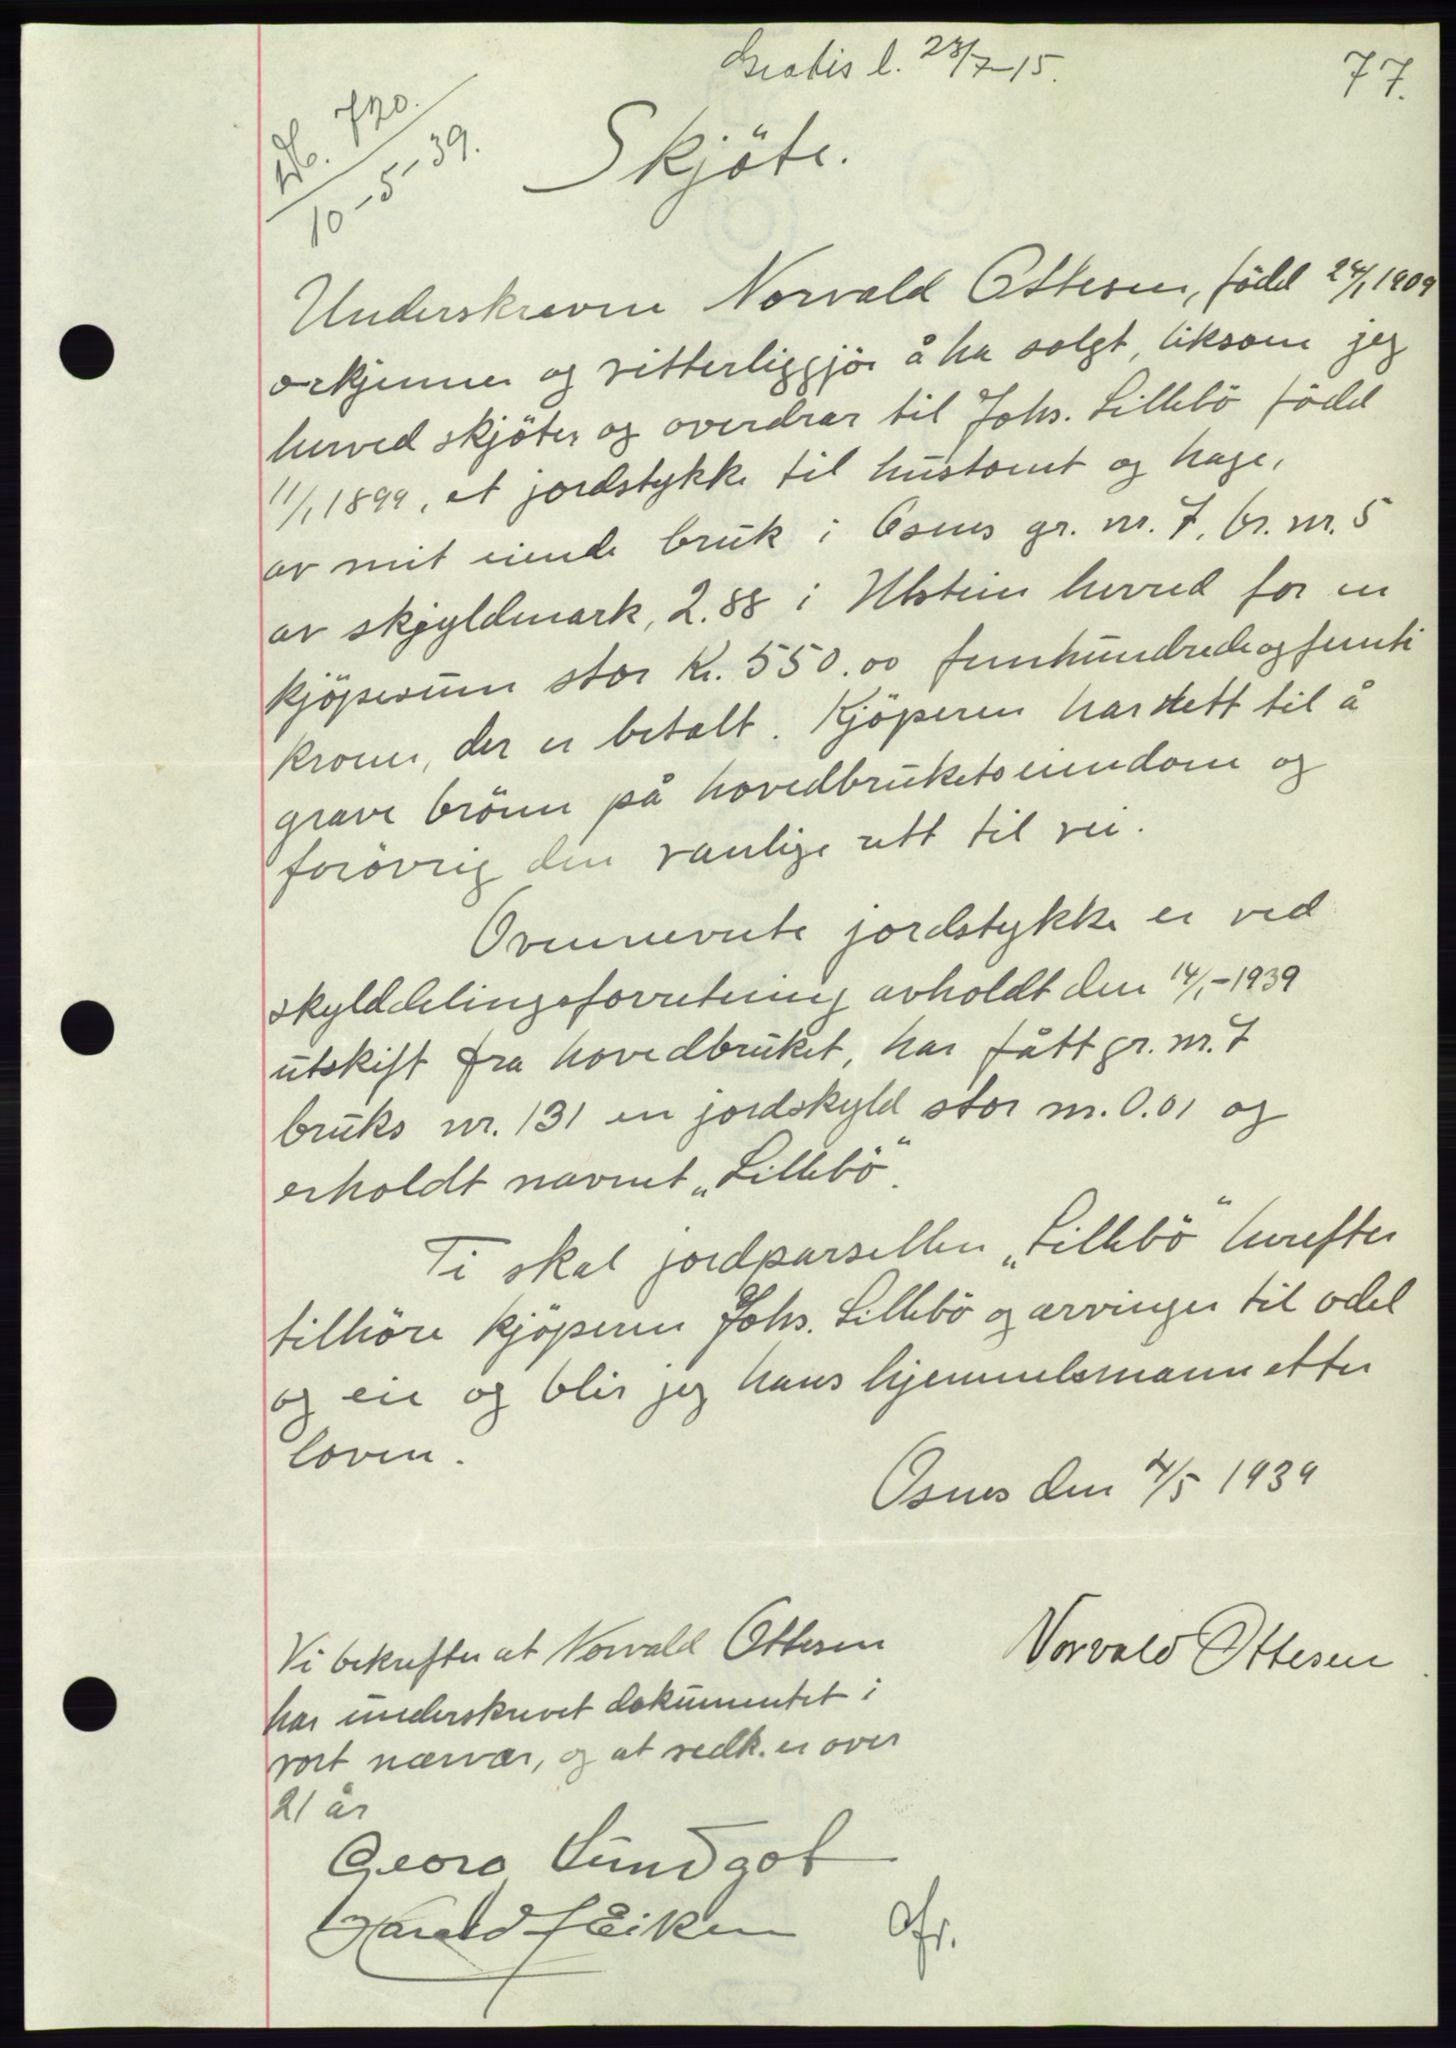 Gratis l. 23/7-15.
77.
Db. 720.
10-5-39.
Skjöte.
Underskrevne Norvald Ottesen, född 24/1 1909
erkjenner og vitterliggjör å ha solgt, liksom jeg
herved skjöter og overdrar til Johs. Lillebö född
11/1 1899, et jordstykke til hustomt og hage,
av mit eiende bruk i Osnes gr. nr. 7, br. nr. 5
av skjyldmark, 2.88 i Ulstein herred for en
kjöpesum stor Kr. 550.00 femhundredeogfemti
kroner, der er betalt. Kjöperen har rett til å
grave brönn på hovedbrukets eiendom og
forövrig den vanlige rett til vei.
Ovennevnte jordstykke er ved
skylddelingsforretning avholdt den 14/1-1939
utskift fra hovedbruket, har fått gr. nr. 7
bruks nr. 131 en jordskyld stor m. 0.01 og
erholdt navnet „Lillebö".
Ti skal jordparsellen „Lillebö" herefter
tilhöre kjöperen Johs. Lillebö og arvinger til odel
og eie og blir jeg hans hjemmelsmann etter
loven.
Osnes den 4/5 1939
Vi bekrefter at Norvald Ottesen
Norvald Ottesen
har underskrevet dokumentet i
vort nærvær, og at vedk. er over
21 år
Georg Sundgot
Harald J Eiken